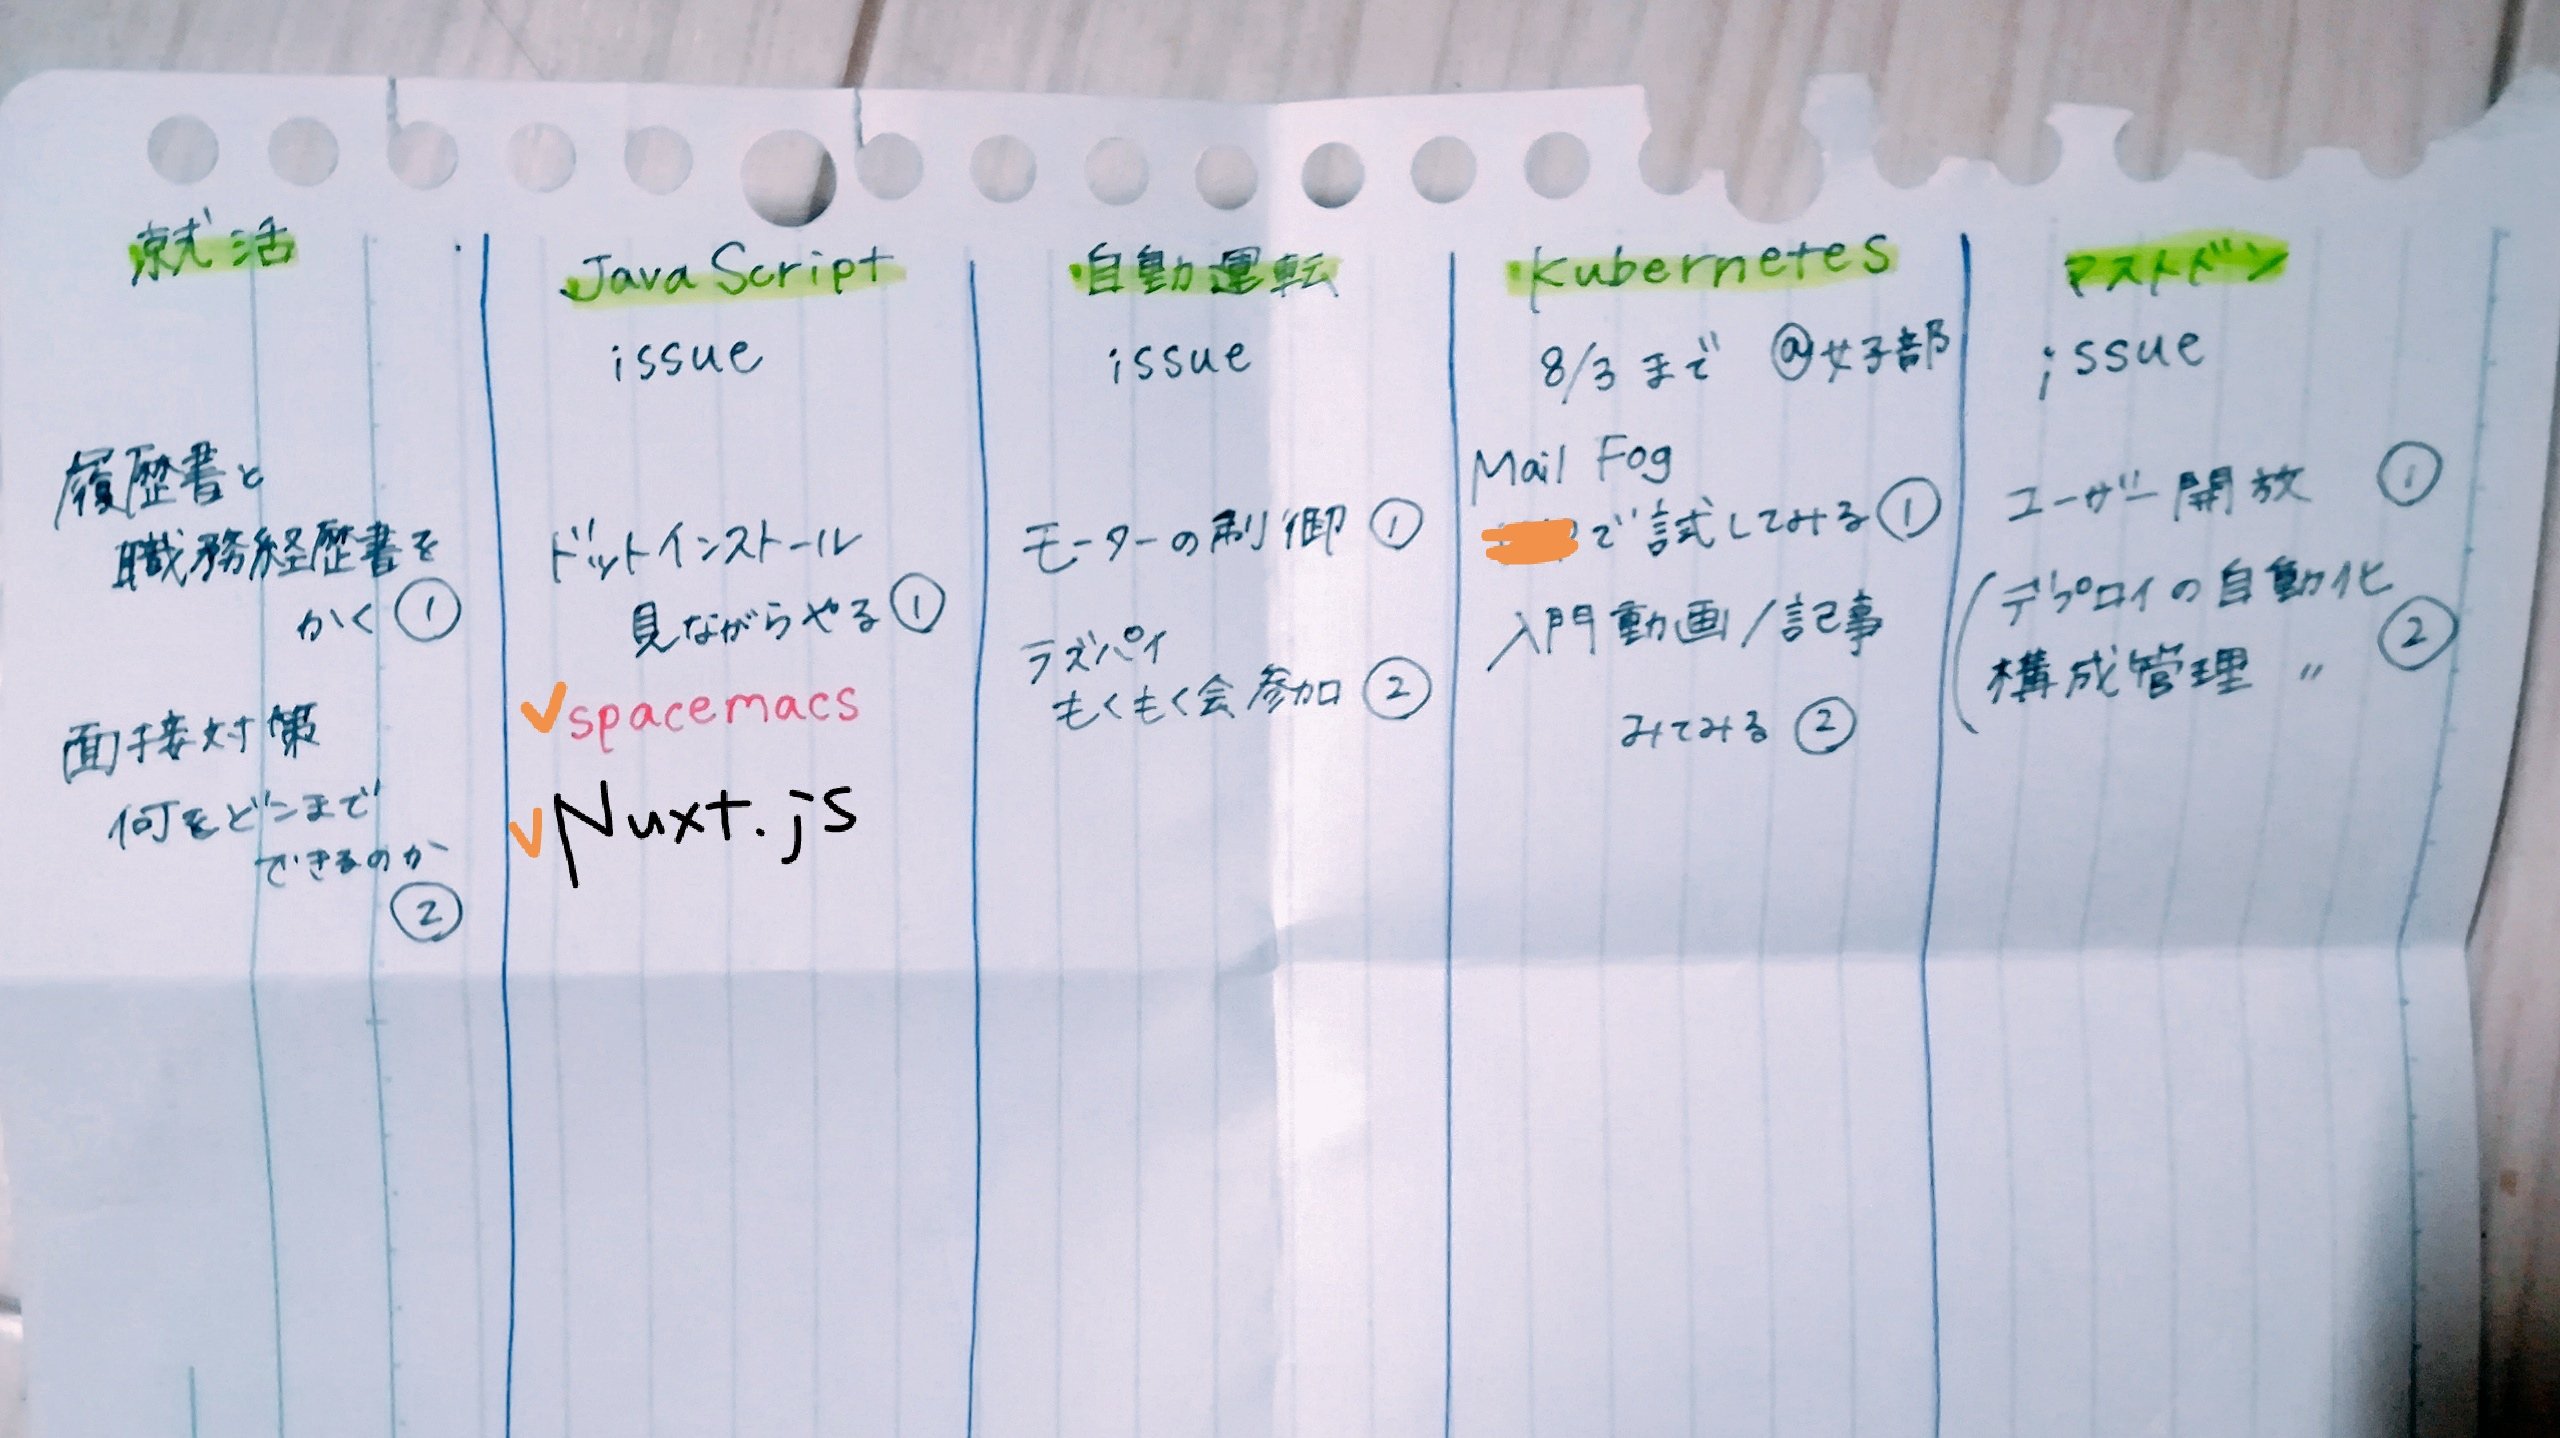 就活
履歴書と
職務経歴書を
かく ①
面接対策
何をどこまで
できるのか
②
JavaScript
issue
ドットインストール
見ながらやる ①
✓spacemacs
✓Nuxt.js
自動運転
issue
モーターの制御 ①
ラズパイ
もくもく会参加 ②
Kubernetes
8/3まで @女子部
Mail Fog
で試してみる ①
入門動画/記事
みてみる ②
マストドン
issue
ユーザー開放 ①
デプロイの自動化
構成管理 〃 ②